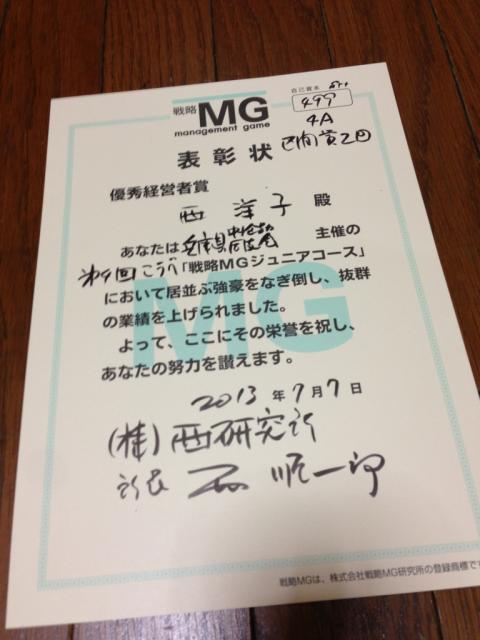 戦略MG
management game
自己資本
499
4A
表彰状
優秀経営者賞
西 洋子 殿
あなたは 主催の
第9回こうべ「戦略MGジュニアコース」
において居並ぶ強豪をなぎ倒し、抜群
の業績を上げられました。
よって、ここにその栄誉を祝し、
あなたの努力を讃えます。
2013年7月7日
(株)西研究所
所長 西 順一郎
戦略MGは、株式会社戦略MG研究所の登録商標です